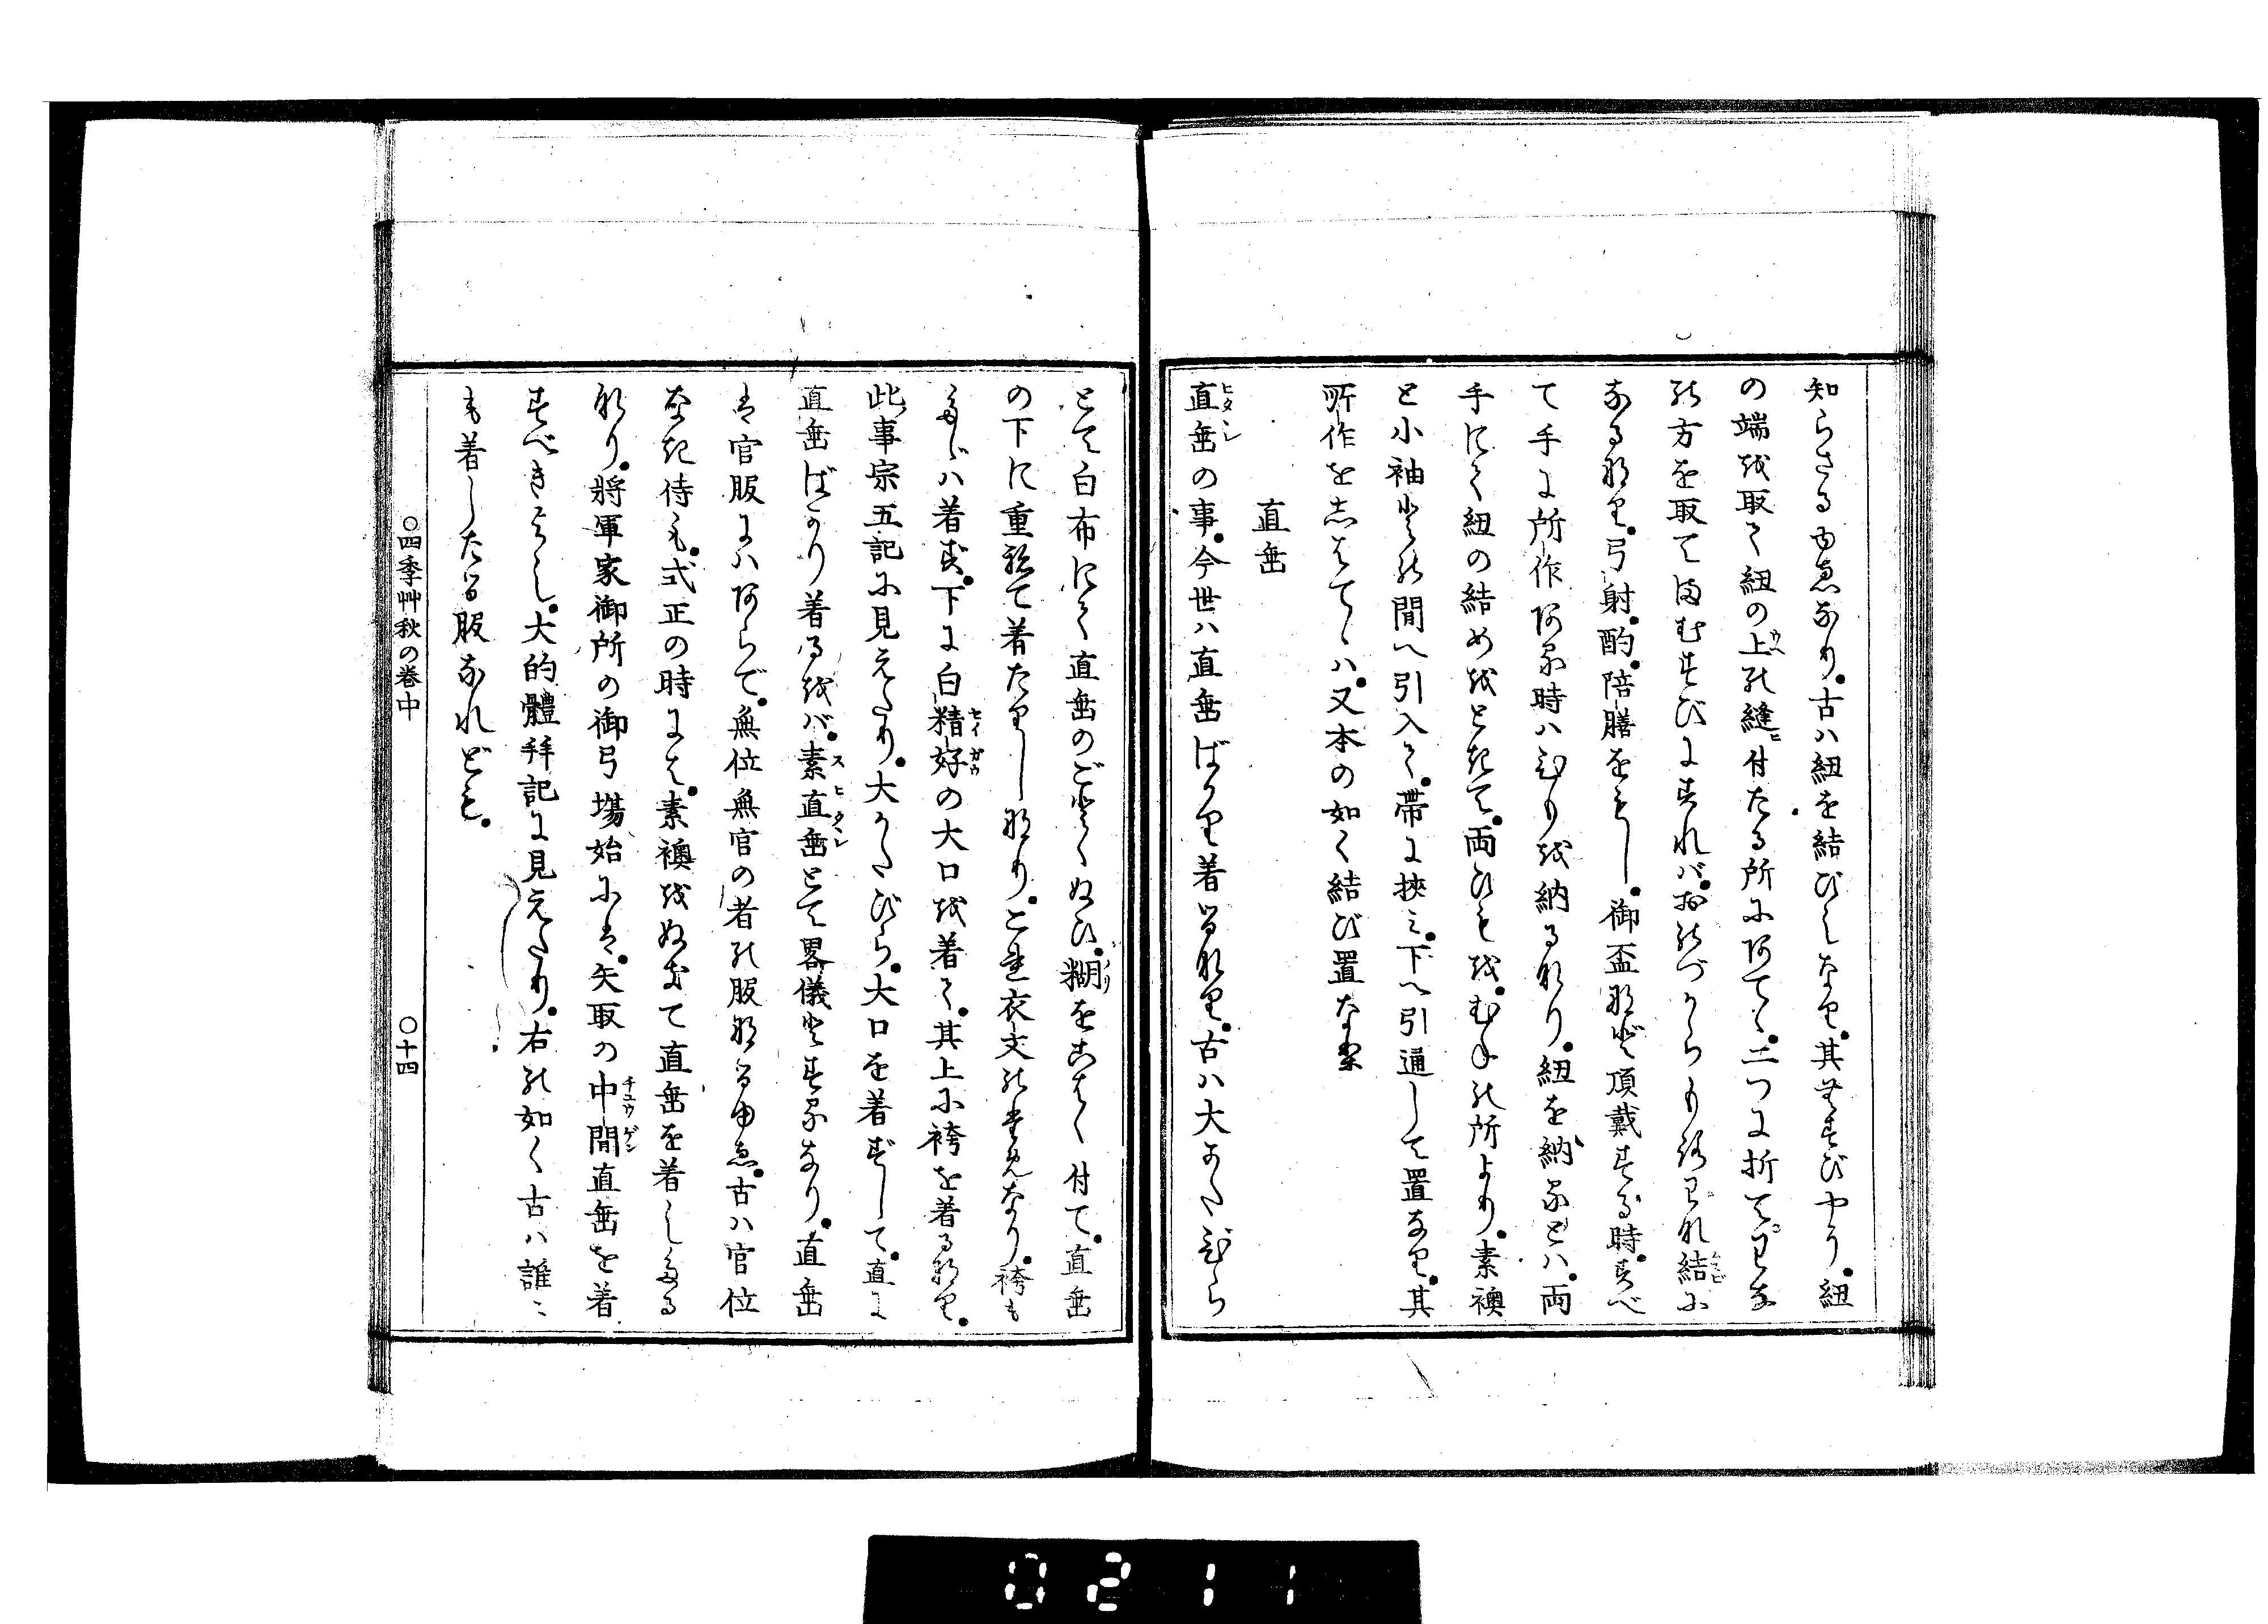 知らさる由ゑなり。古ハ紐を結びしなり。其むすびやう。紐
の端を取て紐の上の縫付たる所にあてゝ。二つに折て。わな
の方を取てまむすびにすれバ。おのづからもろわな結に
なるなり。弓射。酌。陪膳をもし。御盃など頂戴する時。すべ
て手に所作ある時ハひもを納るなり。紐を納るとハ。両
手にて紐の結めをときて。両ひもを。むねの所より。素襖
と小袖との間へ引入て。帯に挟ミ。下へ引通して置なり。其
所作をしはてゝハ。又本の如く結び置なり
直垂
直垂の事。今世ハ直垂ばかり着るなり。古ハ大かたびら
とて白布にて直垂のごとくぬひ。糊をこはく付て。直垂
の下に重ねて着たりしなり。これ衣文のためなり。袴も
たゞハ着ず。下に白精好の大口を着て。其上に袴を着るなり。
此事宗五記に見えたり。大かたびら。大口を着ずして。直に
直垂ばかり着るをバ。素直垂とて畧儀とするなり。直垂
は官服にハあらで。無位無官の者の服なるゆゑ。古ハ官位
なき侍も。式正の時には。素襖をぬぎて直垂を着したる
なり。将軍家御所の御弓場始には。矢取の中間直垂を着
すべきよし。大的體拝記に見えたり。右の如く古ハ誰ニ
も着したる服なれども。
○四季艸秋の巻中　○十四
0211